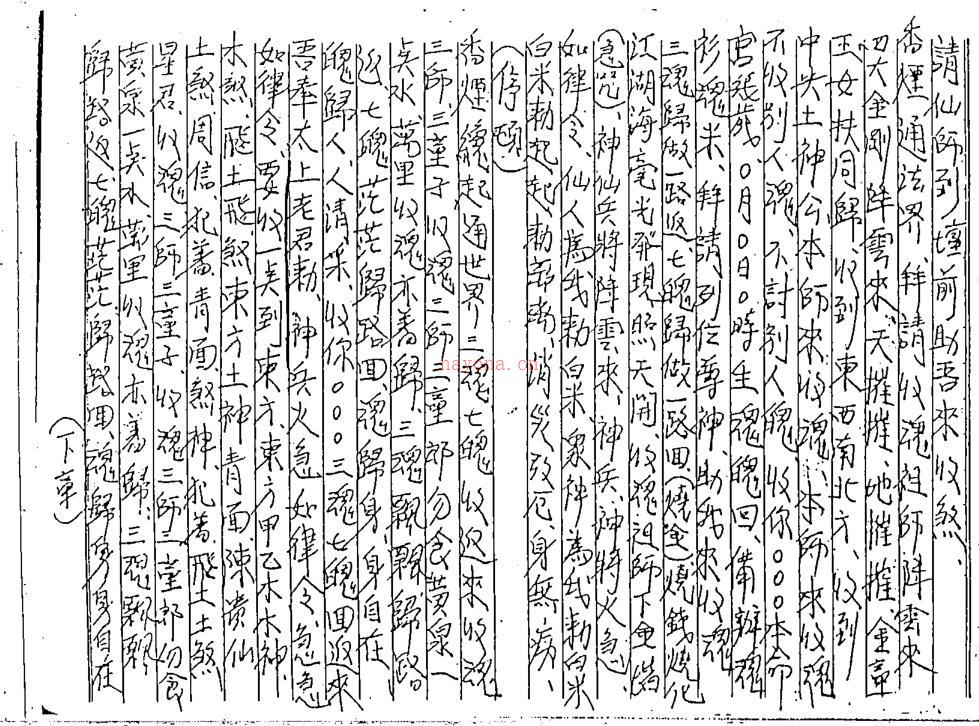 請仙師到壇前助吾來收煞、
香煙通法界、拜請收魂祖師降雲來
四大金剛降雲來、天摧摧、地摧摧、金童
玉女扶同歸、收到東西南北方、收到
中央土神公本師來收魂、本師來收魂
不收別人魂、不討別人魄、收你〇〇〇本命
宮 歲、〇月〇日〇時生、魂魄回、備辦魂
衫魂米、拜請列位尊神、助我來收魂
三魂歸做一路返、七魄歸做一路回、(燒金)燒錢燒化
江湖海、毫光發現照天開、收魂祖師下金階
(急咒)、神仙兵將降雲來、神兵、神將火急、
如律令、仙人為我勅白米眾神為我勅白米
白米勅起起、勅 消災改厄、身無病、
(停頓)
香煙 起通世界三魂七魄收返來收魂
三師三童子收魂三師三童郎勿食黃泉一
点水、萬里收魂亦著歸、三魂飄飄歸路
返、七魄茫茫歸路回、魂歸身、身自在
魄歸人、人清采、收你〇〇〇三魂七魄回返來
吾奉太上老君勅、神兵火急如律令、急急
如律令、要收一点到東方、東方甲乙木木神、
木煞、飛土飛煞東方土神、青面、陳 仙
土煞周信、犯著青面煞神犯著、飛土土煞
星君、收魂三師三童子收魂三師三童郎勿食
黃泉一点水、萬里收魂亦著歸、三魂飄飄
歸路返、七魄茫茫歸路回、魂歸身身自在
(下章)
nayona.cn